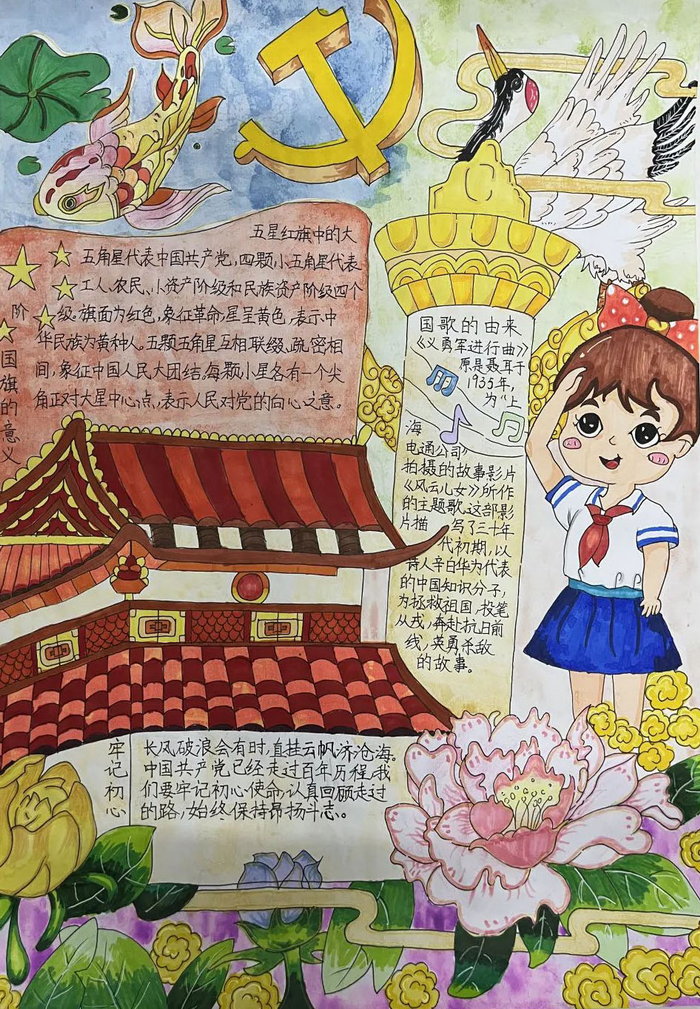 国旗的意义
五星红旗中的大
五角星代表中国共产党,四颗小五角星代表
工人、农民、小资产阶级和民族资产阶级四个
阶级。旗面为红色,象征革命,星呈黄色,表示中
华民族为黄种人。五颗五角星互相联缀、疏密相
间,象征中国人民大团结。每颗小星各有一个尖
角正对大星中心点,表示人民对党的向心之意。
国歌的由来
《义勇军进行曲》
原是聂耳于
1935年,
为“上
海
电通公司》
拍摄的故事影片
《风云儿女》所作
的主题歌,这部影
片描写了三十年
代初期,以
诗人辛白华为代表
的中国知识分子,
为拯救祖国,投笔
从戎,奔赴抗日前
线,英勇杀敌
的故事。
牢记初心
长风破浪会有时,直挂云帆济沧海。
中国共产党已经走过百年历程,我
们要牢记初心使命,认真回顾走过
的路,始终保持昂扬斗志。